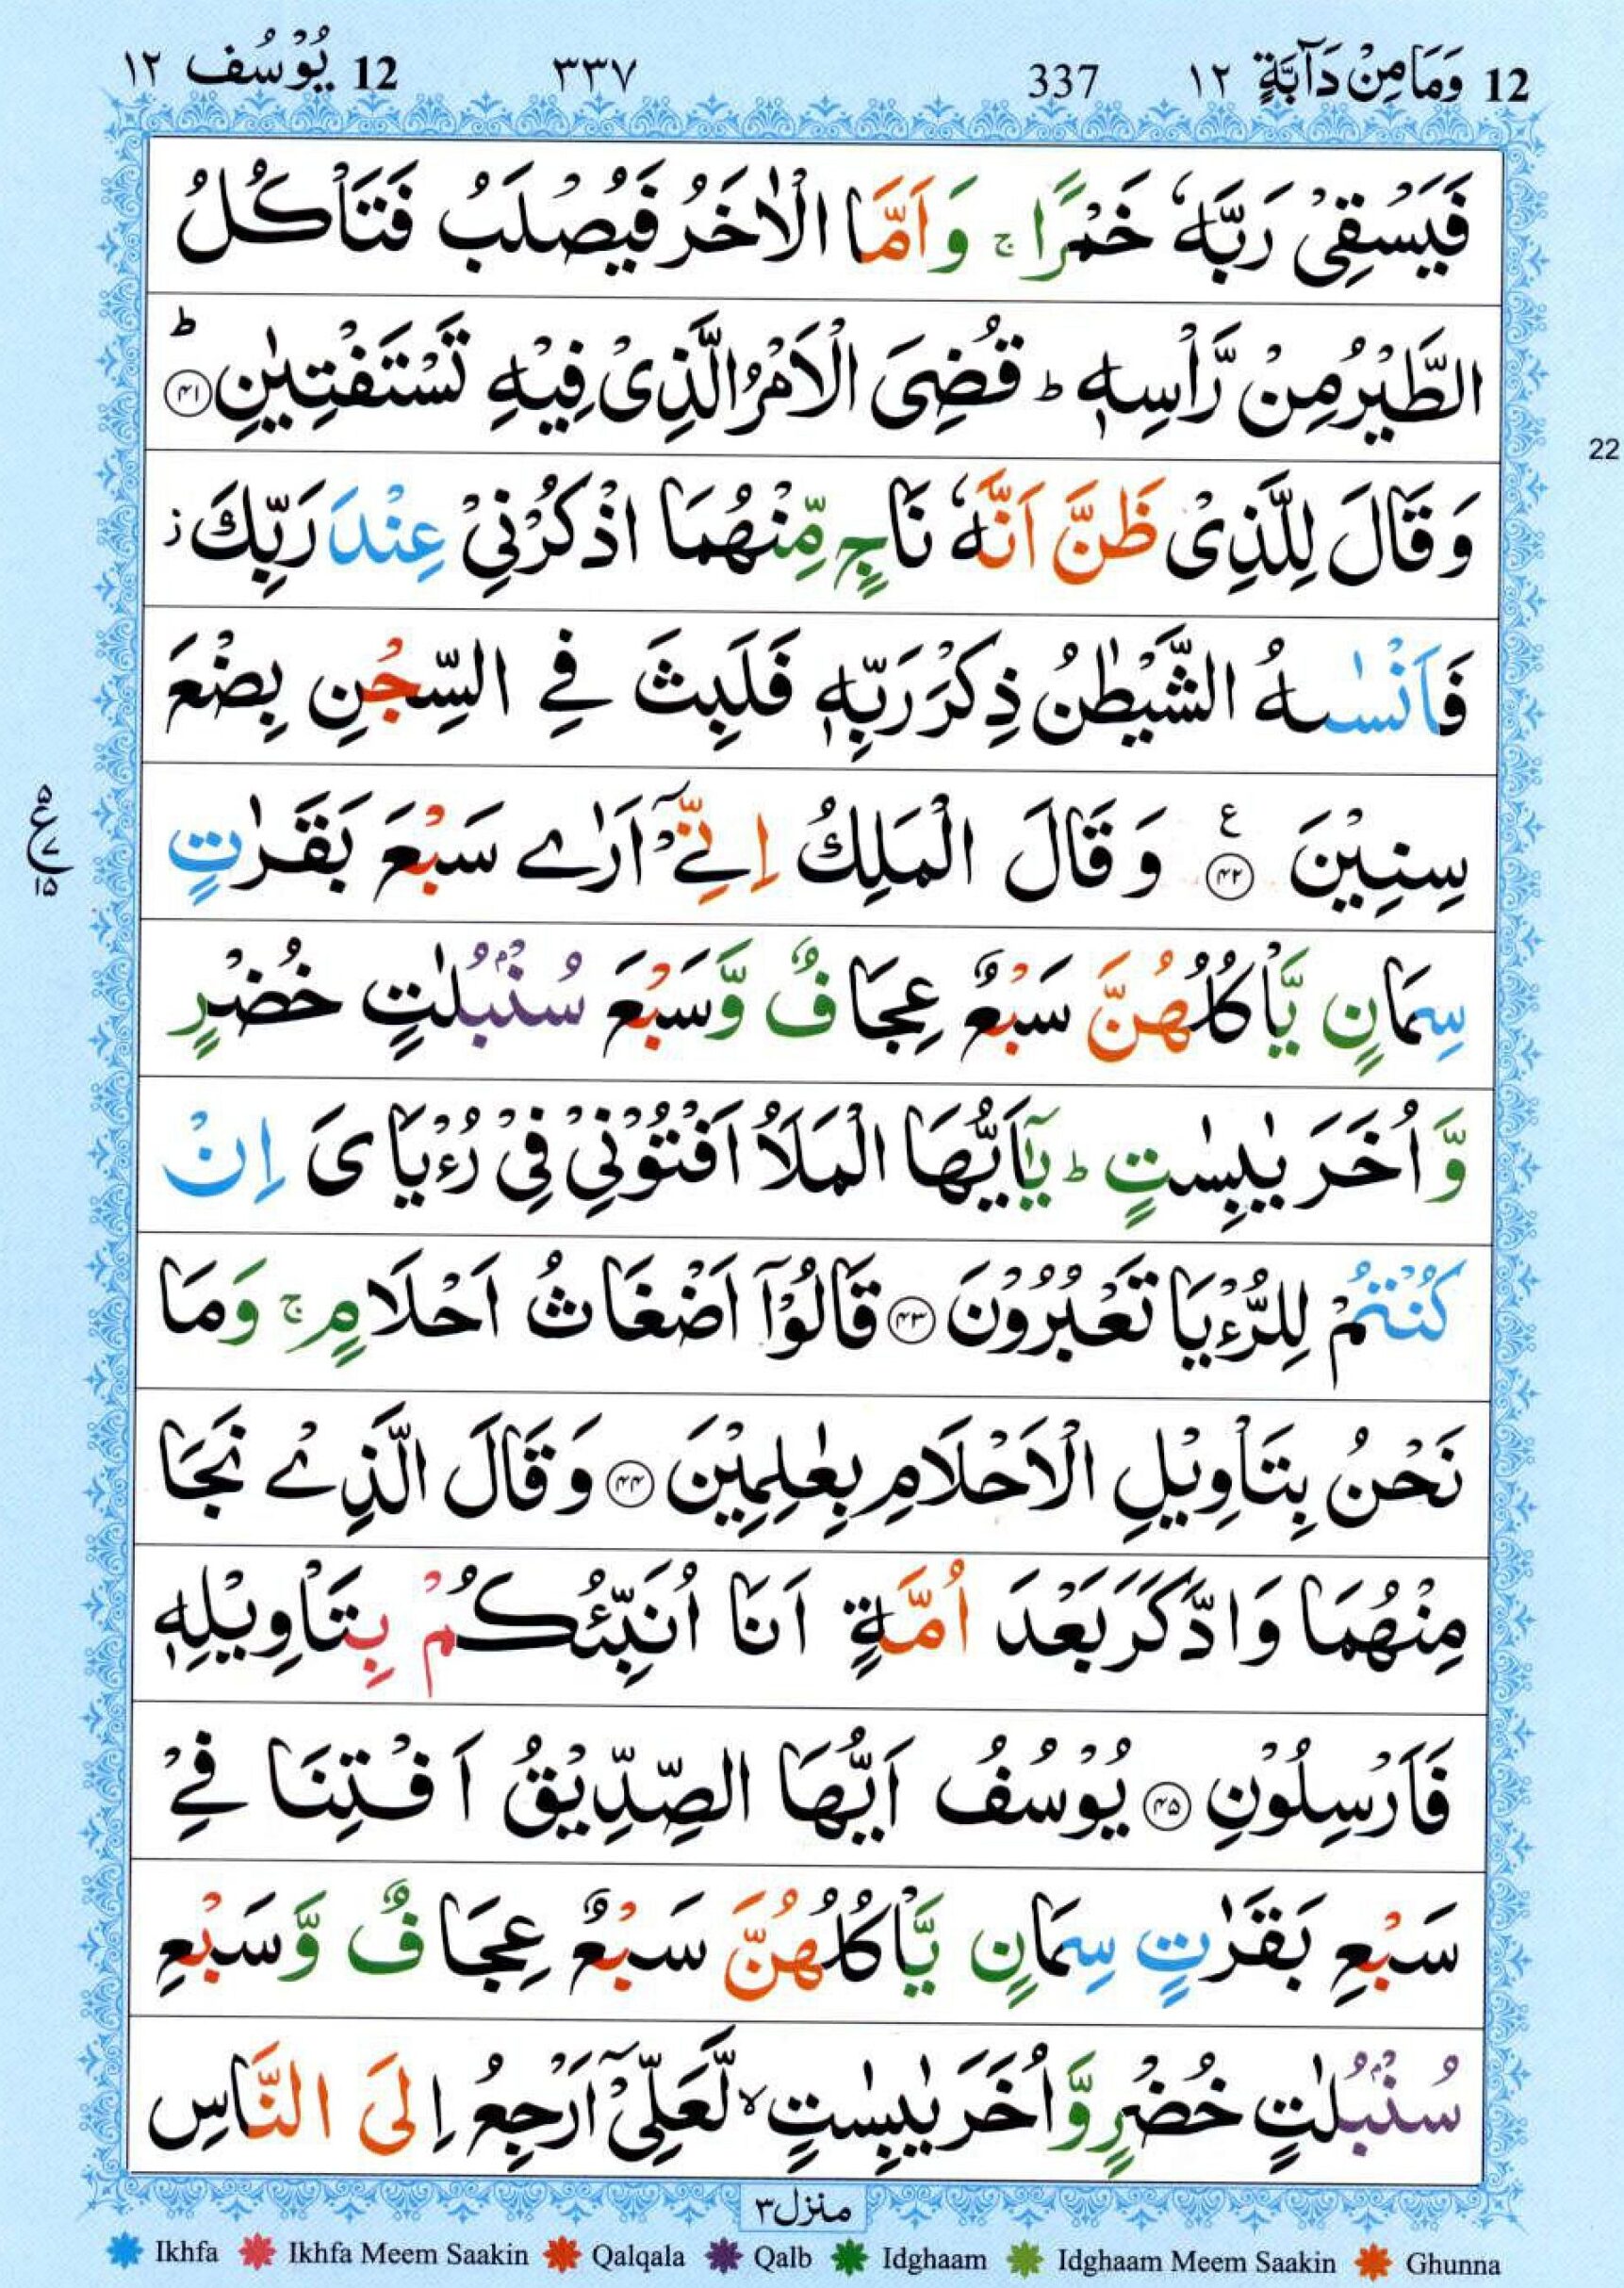 12 وَمَا مِنْ دَآبَّةٍ ١٢ 337 ٣٣٧ 12 يُوْسُف ١٢
فَيَسْقِىْ رَبَّهٗ خَمْرًا ۚ وَاَمَّا الْاٰخَرُ فَيُصْلَبُ فَتَاْكُلُ
الطَّيْرُ مِنْ رَّاْسِهٖ ؕ قُضِىَ الْاَمْرُ الَّذِىْ فِيْهِ تَسْتَفْتِيٰنِ ؕ ﴿۴۱﴾
22
وَقَالَ لِلَّذِىْ ظَنَّ اَنَّهٗ نَاجٍ مِّنْهُمَا اذْكُرْنِىْ عِنْدَ رَبِّكَ ز
فَاَنْسٰىهُ الشَّيْطٰنُ ذِكْرَ رَبِّهٖ فَلَبِثَ فِى السِّجْنِ بِضْعَ
سِنِيْنَ ﴿۴۲﴾ ع وَقَالَ الْمَلِكُ اِنِّىْۤ اَرٰى سَبْعَ بَقَرٰتٍ
۵ ع ٧ ١۵
سِمَانٍ يَّاْكُلُهُنَّ سَبْعٌ عِجَافٌ وَّسَبْعَ سُنْۢبُلٰتٍ خُضْرٍ
وَّاُخَرَ يٰبِسٰتٍ ؕ يٰۤاَيُّهَا الْمَلَاُ اَفْتُوْنِىْ فِىْ رُءْيَاىَ اِنْ
كُنْتُمْ لِلرُّءْيَا تَعْبُرُوْنَ ﴿۴۳﴾ قَالُوْۤا اَضْغَاثُ اَحْلَامٍ ۚ وَمَا
نَحْنُ بِتَاْوِيْلِ الْاَحْلَامِ بِعٰلِمِيْنَ ﴿۴۴﴾ وَقَالَ الَّذِىْ نَجَا
مِنْهُمَا وَادَّكَرَ بَعْدَ اُمَّةٍ اَنَا اُنَبِّئُكُمْ بِتَاْوِيْلِهٖ
فَاَرْسِلُوْنِ ﴿۴۵﴾ يُوْسُفُ اَيُّهَا الصِّدِّيْقُ اَفْتِنَا فِىْ
سَبْعِ بَقَرٰتٍ سِمَانٍ يَّاْكُلُهُنَّ سَبْعٌ عِجَافٌ وَّسَبْعِ
سُنْۢبُلٰتٍ خُضْرٍ وَّاُخَرَ يٰبِسٰتٍ ۙ لَّعَلِّىْۤ اَرْجِعُ اِلَى النَّاسِ
منزل ٣
Ikhfa Ikhfa Meem Saakin Qalqala Qalb Idghaam Idghaam Meem Saakin Ghunna